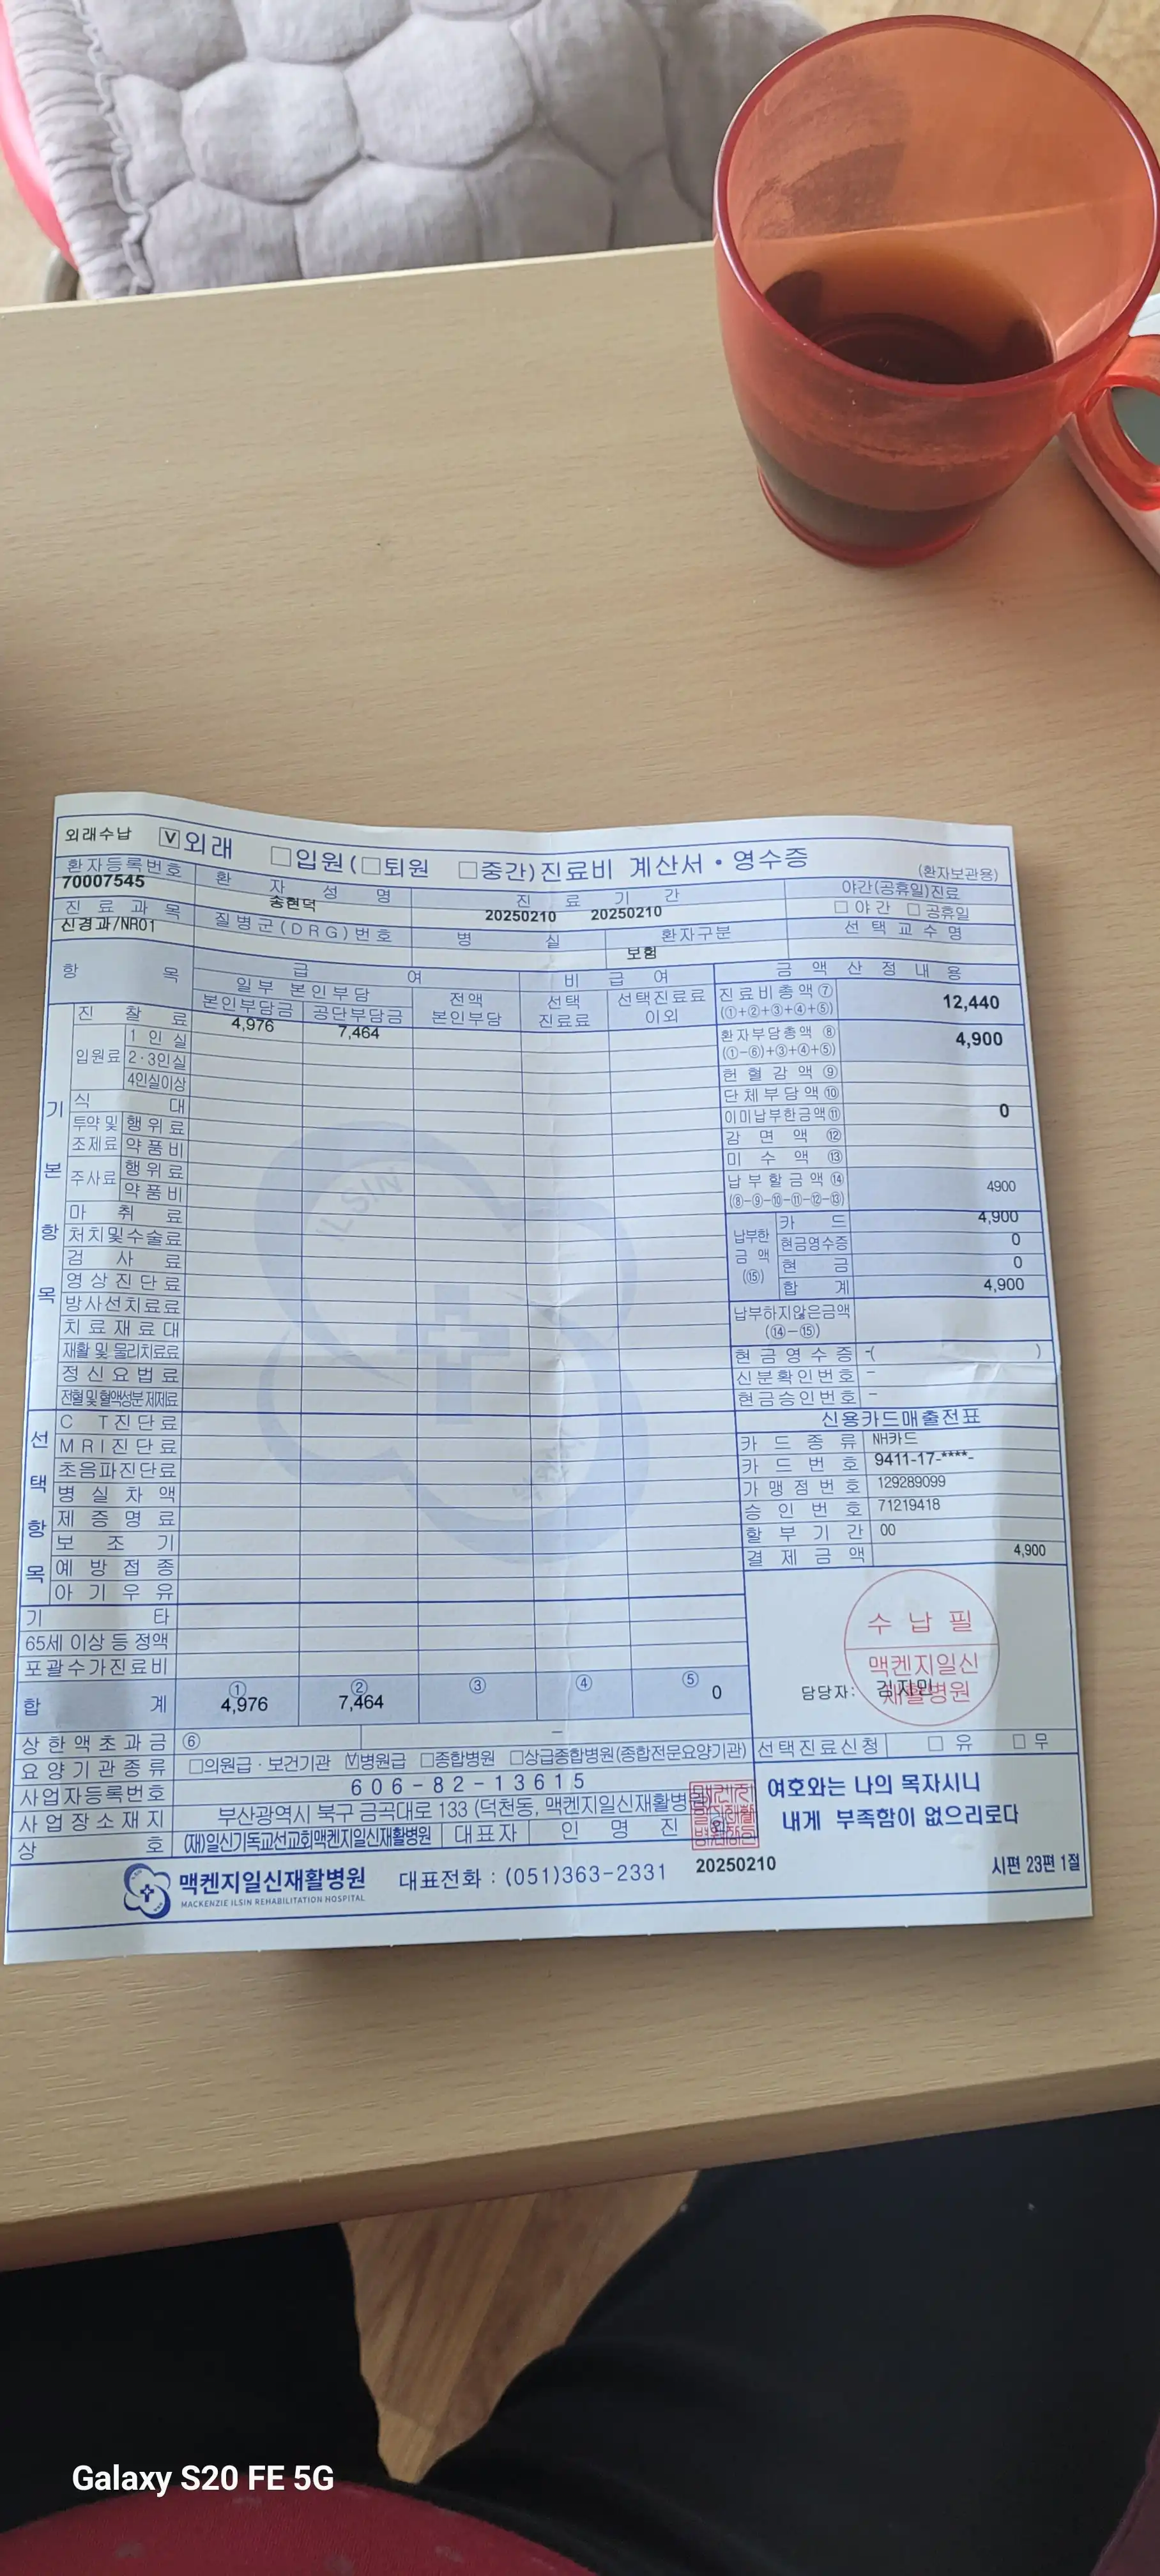 외래수납 V 외래 □입원(□퇴원 □중간)진료비 계산서•영수증 (환자보관용)
환자등록번호 환 자 성 명 진 료 기 간 야간(공휴일)진료
70007545 송현덕 20250210 20250210 □ 야 간 □ 공휴일
진 료 과 목 질병군(DRG)번호 병 실 환자구분 선 택 교 수 명
신경과/NR01 보험
항 목 급 여 비 급 여 금 액 산 정 내 용
일부 본인부담 전액 본인부담 선택 진료료 선택진료료 이외
본인부담금 공단부담금
진료비총액⑦ (①+②+③+④+⑤) 12,440
기 본 항 목
진 찰 료 4,976 7,464
환자부담총액 ⑧ (①-⑥)+③+④+⑤) 4,900
입원료 1 인 실
2·3인실
4인실이상
헌 혈 감 액 ⑨
단체부담액⑩
식 대
이미납부한금액⑪ 0
투약 및 조제료 행위료
약품비
감 면 액 ⑫
미 수 액 ⑬
주사료 행위료
약품비
납부할금액⑭ (⑧-⑨-⑩-⑪-⑫-⑬) 4900
마 취 료
처치및수술료
검 사 료
영상진단료
방사선치료료
치료재료대
재활 및 물리치료료
정신요법료
전혈 및 혈액성분 제제료
납부한 금 액 (⑮)
카 드 4,900
현금영수증 0
현 금 0
합 계 4,900
납부하지않은금액 (⑭-⑮)
현금영수증 -( )
신분확인번호 -
현금승인번호 -
선 택 항 목
C T진단료
MRI진단료
초음파진단료
병 실 차 액
제 증 명 료
보 조 기
예 방 접 종
아 기 우 유
신용카드매출전표
카 드 종 류 NH카드
카 드 번 호 9411-17-****-
가 맹 점 번 호 129289099
승 인 번 호 71219418
할 부 기 간 00
결 제 금 액 4,900
기 타
65세 이상 등 정액
포괄수가진료비
합 계 ① 4,976 ② 7,464 ③ ④ ⑤ 0
수 납 필
맥켄지일신
재활병원
담당자: 김지민
상한액초과금 ⑥ -
요양기관종류 □의원급·보건기관 V병원급 □종합병원 □상급종합병원(종합전문요양기관) 선택진료신청 □ 유 □ 무
사업자등록번호 606-82-13615
사업장소재지 부산광역시 북구 금곡대로 133 (덕천동, 맥켄지일신재활병원)
상 호 (재)일신기독교선교회맥켄지일신재활병원 대표자 인 명 진
여호와는 나의 목자시니
내게 부족함이 없으리로다
시편 23편 1절
ILSIN
맥켄지일신재활병원 대표전화 : (051)363-2331 20250210
MACKENZIE ILSIN REHABILITATION HOSPITAL
Galaxy S20 FE 5G